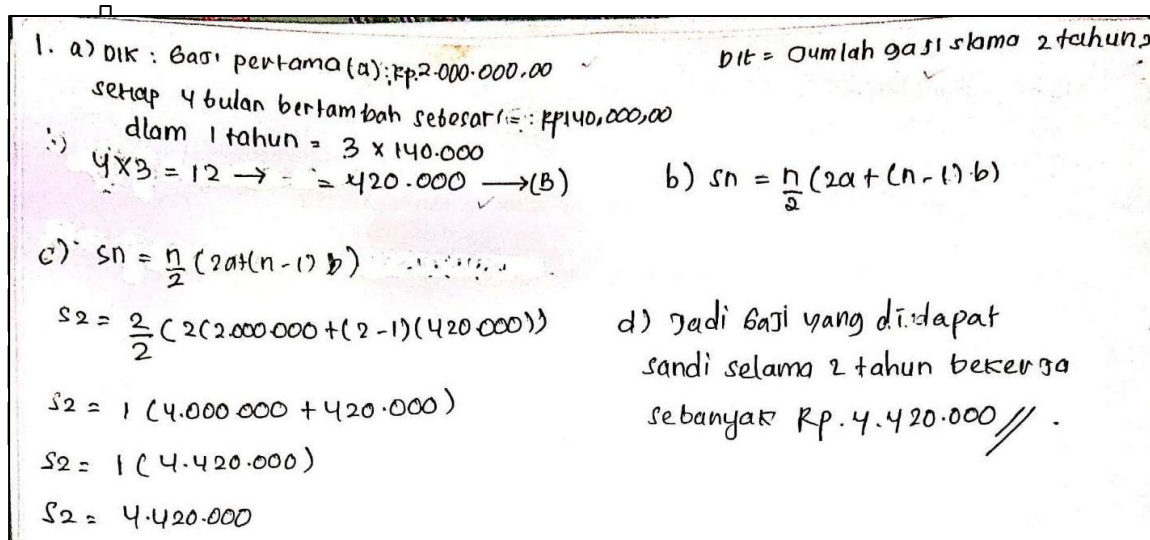 1. a) DIK : Gaji pertama (a) : Rp.2.000.000,00
Dit = Jumlah gaji slama 2 tahun?
setiap 4 bulan bertambah sebesar = : Rp140,000,00
dlam 1 tahun = 3 x 140.000
4x3 = 12 → = 420.000 → (B)
b) sn = n/2 (2a + (n - 1) b)
c) sn = n/2 (2a+(n - 1) b)
S2 = 2/2 (2(2.000.000 + (2 - 1) (420.000))
S2 = 1 (4.000.000 + 420.000)
S2 = 1 ( 4.420.000)
S2 = 4.420.000
d) Jadi Gaji yang didapat
sandi selama 2 tahun bekerja
sebanyak Rp. 4.420.000 // .